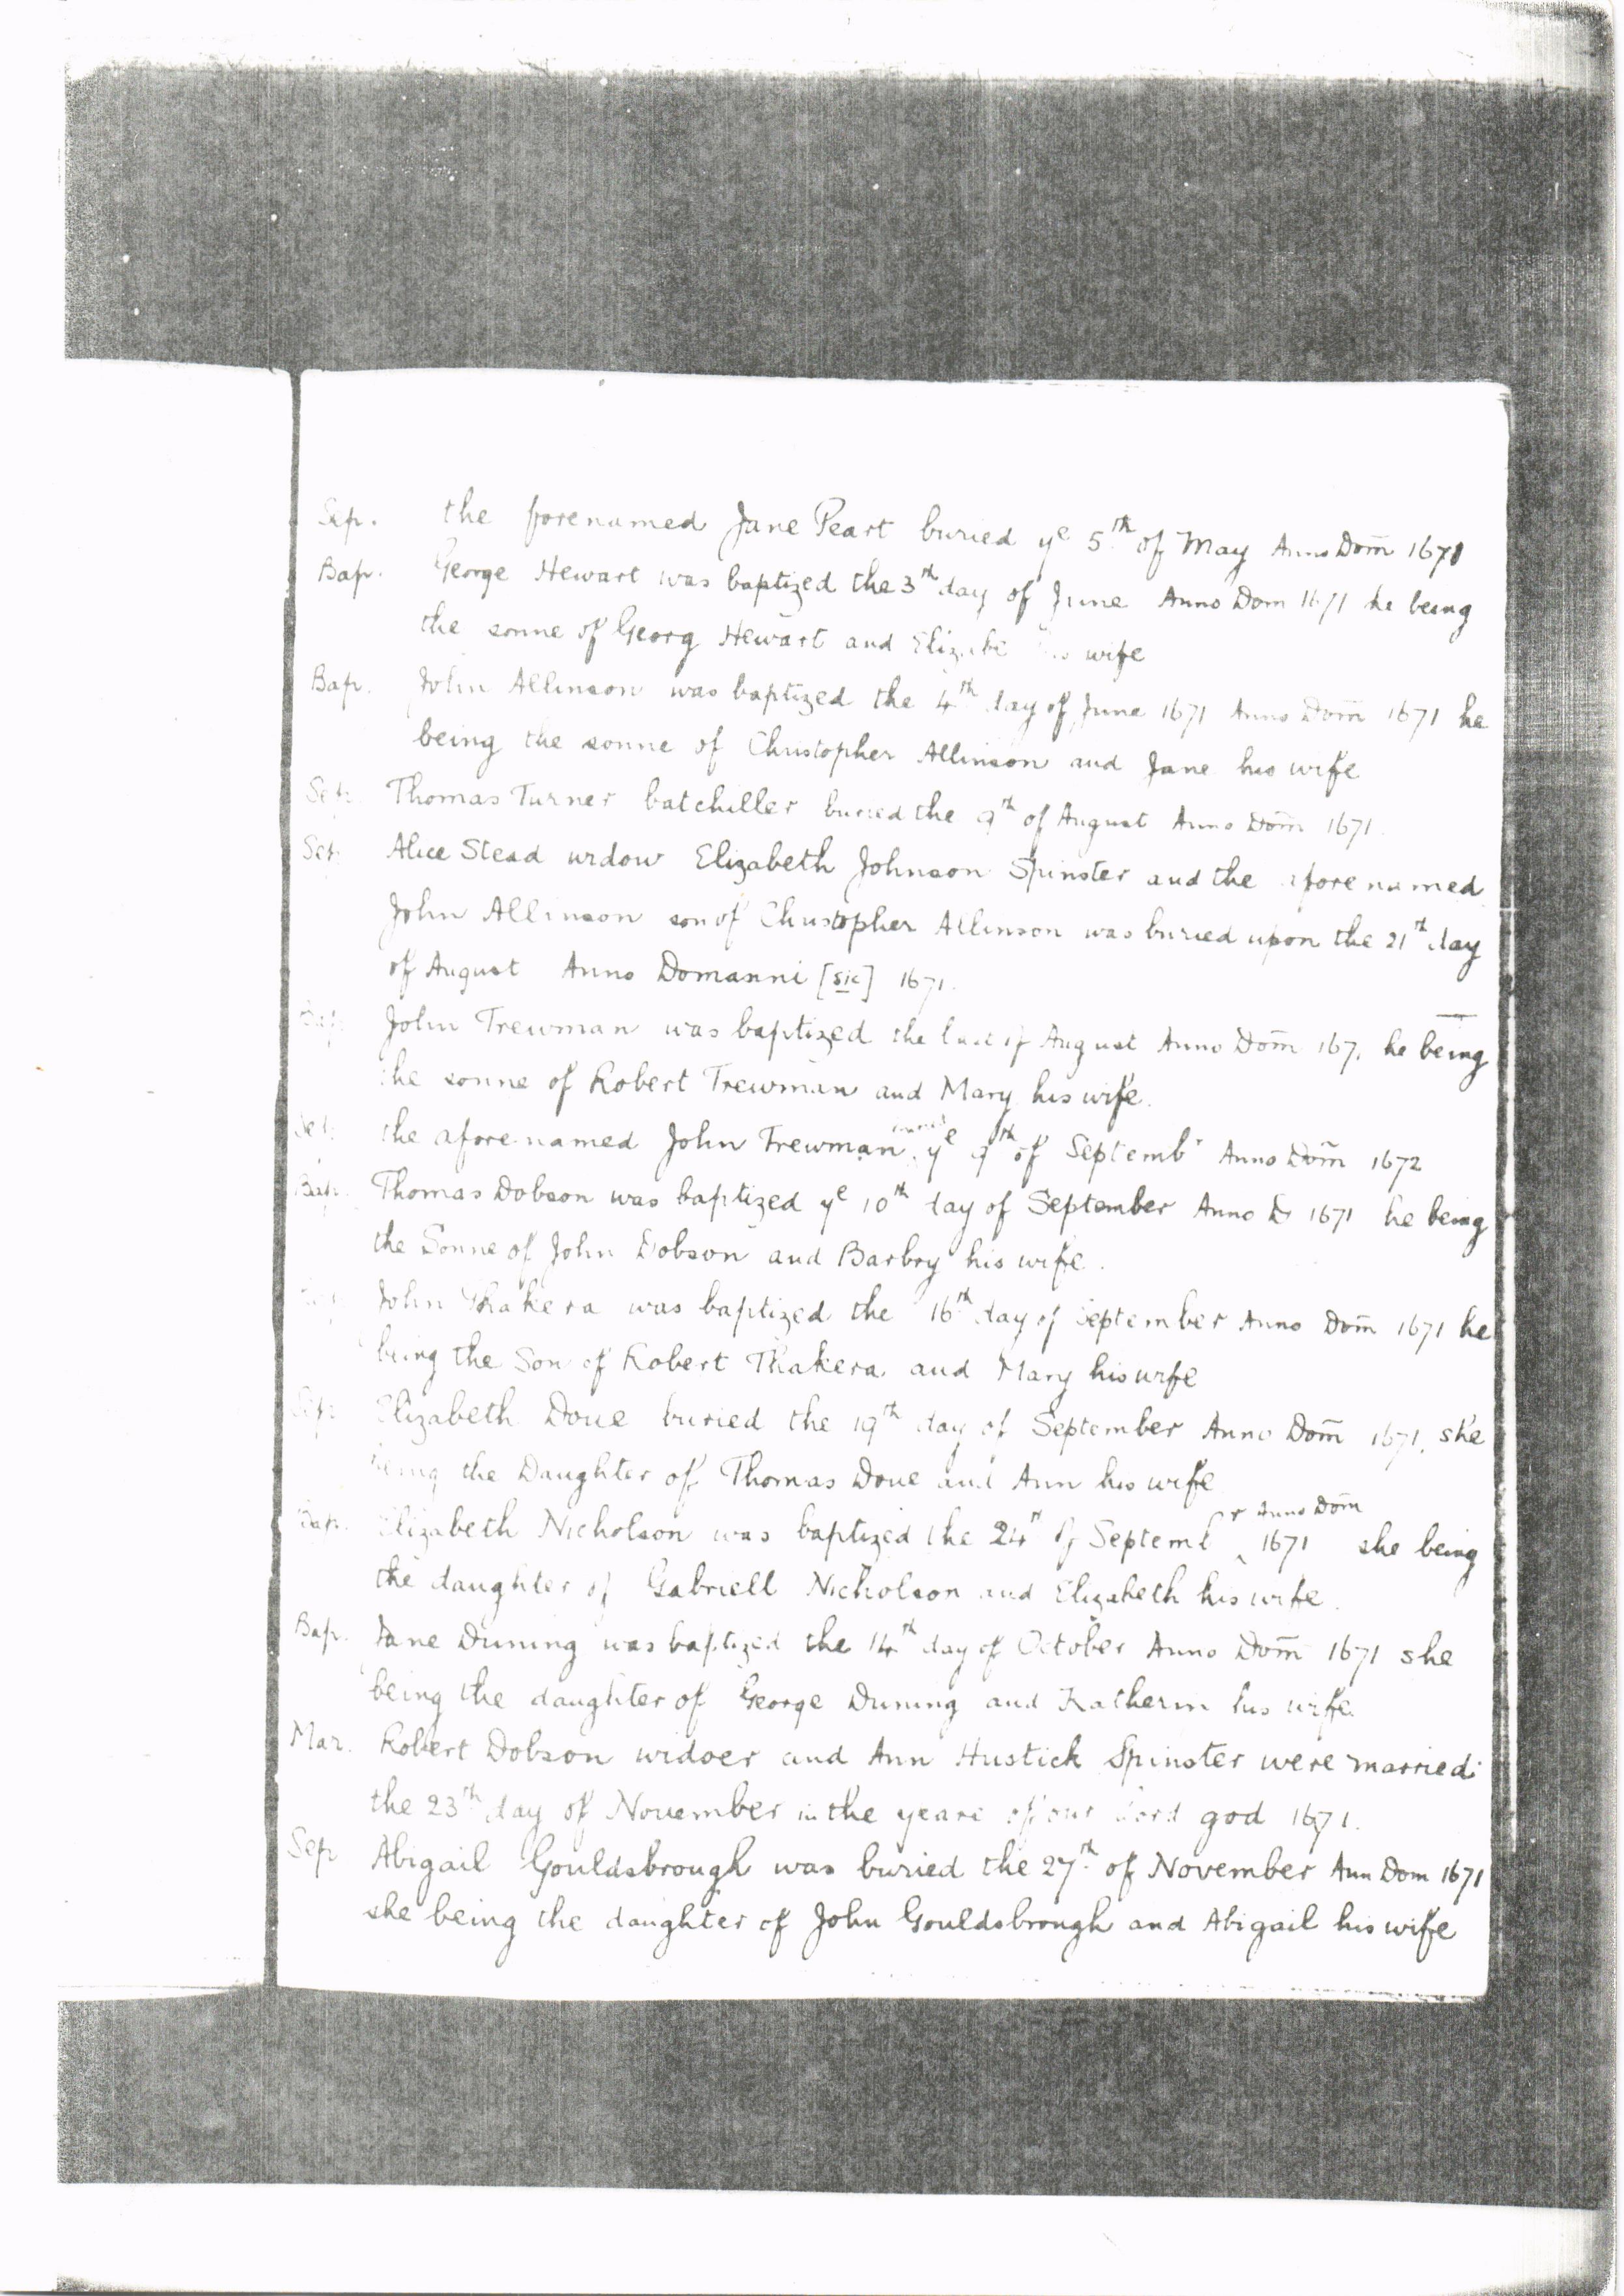 Sep. the forenamed Jane Peart buried ye 5th of May Anno Dom̄ 1671
Bap. George Hewart was baptized the 3rd day of June Anno Dom 1671 he being
the sonne of Georg Hewart and Elizabe his wife
Bap. John Allinson was baptized the 4th day of June 1671 Anno Dom̄ 1671 he
being the sonne of Christopher Allinson and Jane his wife
Sep. Thomas Turner batchiller buried the 9th of August Anno Dom̄ 1671.
Sep. Alice Stead widow Elizabeth Johnson Spinster and the aforenamed
John Allinson son of Christopher Allinson was buried upon the 21th day
of August Anno Domanni [sic] 1671.
Bap. John Trewman was baptized the last of August Anno Dom̄ 167. he being
the sonne of Robert Trewman and Mary his wife.
Sep. the aforenamed John Trewman buried ye 9th of Septembr Anno Dom̄ 1672
Bap. Thomas Dobson was baptized ye 10th day of September Anno D 1671 he being
the Sonne of John Dobson and Barbry his wife.
John Thakera was baptized the 16th day of September Anno Dom̄ 1671 he
being the Son of Robert Thakera and Mary his wife
Sep. Elizabeth Doue buried the 19th day of September Anno Dom̄ 1671, she
being the Daughter of Thomas Doue and Ann his wife
Bap. Elizabeth Nicholson was baptized the 24th of Septembr Anno Dom̄ 1671 she being
the daughter of Gabriell Nicholson and Elizabeth his wife.
Bap. Jane Duning was baptized the 14th day of October Anno Dom̄ 1671 she
being the daughter of George Duning and Katherin his wife.
Mar. Robert Dobson widoer and Ann Hustick Spinster were married
the 23th day of Nouember in the yeare of our Lord god 1671.
Sep Abigail Gouldsbrough was buried the 27th of November Ann Dom 1671
she being the daughter of John Gouldsbrough and Abigail his wife